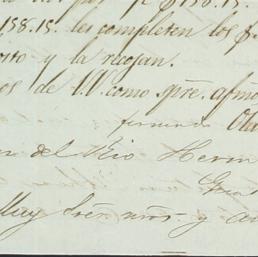 158.15. les completen los $
osto y la recojan.
os de V.V. como spre. afmo
Fernando Ola
del Rio Herm
May Sres. mios y a